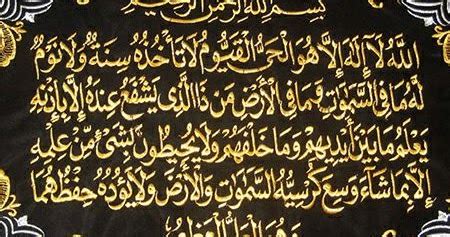 بِسْمِ اللهِ الرَّحْمٰنِ الرَّحِيْمِ
اَللهُ لَآ اِلٰهَ اِلَّا هُوَ الْحَيُّ الْقَيُّوْمُ لَا تَأْخُذُهٗ سِنَةٌ وَلَا نَوْمٌ
لَهٗ مَا فِي السَّمٰوٰتِ وَمَا فِي الْاَرْضِ مَنْ ذَا الَّذِيْ يَشْفَعُ عِنْدَهٗ اِلَّا بِاِذْنِهٖ
يَعْلَمُ مَا بَيْنَ اَيْدِيْهِمْ وَمَا خَلْفَهُمْ وَلَا يُحِيْطُوْنَ بِشَيْءٍ مِّنْ عِلْمِهٖ
اِلَّا بِمَا شَآءَ وَسِعَ كُرْسِيُّهُ السَّمٰوٰتِ وَالْاَرْضَ وَلَا يَؤُدُهٗ حِفْظُهُمَا
وَهُوَ الْعَلِيُّ الْعَظِيْمُ